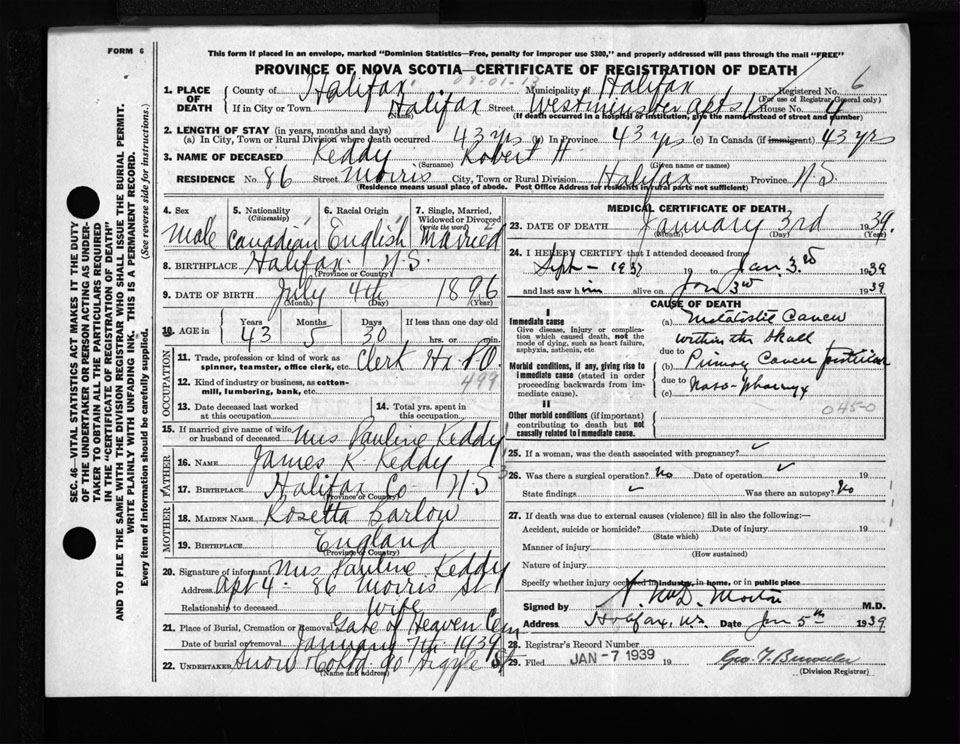 FORM 6
This form if placed in an envelope, marked "Dominion Statistics—Free, penalty for improper use $300," and properly addressed will pass through the mail "FREE"
PROVINCE OF NOVA SCOTIA—CERTIFICATE OF REGISTRATION OF DEATH
SEC. 46—VITAL STATISTICS ACT MAKES IT THE DUTY
OF THE UNDERTAKER OR PERSON ACTING AS UNDER-
TAKER TO OBTAIN ALL THE PARTICULARS REQUIRED
IN THE "CERTIFICATE OF REGISTRATION OF DEATH"
AND TO FILE THE SAME WITH THE DIVISION REGISTRAR WHO SHALL ISSUE THE BURIAL PERMIT.
WRITE PLAINLY WITH UNFADING INK. THIS IS A PERMANENT RECORD.
Every item of information should be carefully supplied. (See reverse side for instructions.)
1. PLACE OF DEATH County of Halifax Municipality of Halifax Registered No. 6
(For use of Registrar General only)
If in City or Town Halifax Street Westminster Apts House No. 4
(Name) (If death occurred in a hospital or institution, give the name instead of street and number)
2. LENGTH OF STAY (in years, months and days)
(a) In City, Town or Rural Division where death occurred 43 yrs (b) In Province 43 yrs (c) In Canada (if immigrant) 43 yrs
3. NAME OF DECEASED Keddy Robert H
(Surname) (Given name or names)
RESIDENCE No. 86 Street Morris City, Town or Rural Division Halifax Province N.S.
(Residence means usual place of abode. Post Office Address for residents in rural parts not sufficient)
4. Sex 5. Nationality (Citizenship) 6. Racial Origin 7. Single, Married, Widowed or Divorced (write the word)
Male Canadian English Married
8. BIRTHPLACE Halifax N.S.
(Province or Country)
9. DATE OF BIRTH July 4th 1896
(Month) (Day) (Year)
10. AGE in Years Months Days If less than one day old
43 5 30 hrs. or min.
OCCUPATION
11. Trade, profession or kind of work as
spinner, teamster, office clerk, etc. Clerk Hx P.O.
12. Kind of industry or business, as cotton-
mill, lumbering, bank, etc. 499
13. Date deceased last worked at this occupation
14. Total yrs. spent in this occupation
15. If married give name of wife or husband of deceased Mrs Pauline Keddy
FATHER
16. NAME James R. Keddy
17. BIRTHPLACE Halifax Co N.S.
(Province or Country)
MOTHER
18. MAIDEN NAME Rosetta Barlow
19. BIRTHPLACE England
(Province or Country)
20. Signature of informant Mrs Pauline Keddy
Address Apt 4- 86 Morris St
Relationship to deceased Wife
21. Place of Burial, Cremation or Removal Gate of Heaven Cem
Date of burial or removal January 7th 1939
22. UNDERTAKER Snow & Co Argyle St
(Name and address)
MEDICAL CERTIFICATE OF DEATH
23. DATE OF DEATH January 3rd 1939.
(Month) (Day) (Year)
24. I HEREBY CERTIFY that I attended deceased from
Sept - 1937 19 to Jan. 3rd 1939
and last saw him alive on Jan 3rd 1939
CAUSE OF DEATH
I
Immediate cause
Give disease, injury or complica-
tion which caused death, not the
mode of dying, such as heart failure,
asphyxia, asthenia, etc
(a) Metastatic Cancer
within the skull
due to
Morbid conditions, if any, giving rise to
immediate cause (stated in order
proceeding backwards from im-
mediate cause).
(b) Primary Cancer
due to
(c) Naso-pharynx
045-0
II
Other morbid conditions (if important)
contributing to death but not
causally related to immediate cause.
25. If a woman, was the death associated with pregnancy?
26. Was there a surgical operation? No Date of operation 19
State findings Was there an autopsy? No
27. If death was due to external causes (violence) fill in also the following:—
Accident, suicide or homicide? Date of injury 19
(State which)
Manner of injury
(How sustained)
Nature of injury
Specify whether injury occurred in industry, in home, or in public place
Signed by Morton M.D.
Address Halifax, N.S. Date Jan 5th 1939
28. Registrar's Record Number
29. Filed JAN -7 1939 19
(Division Registrar)